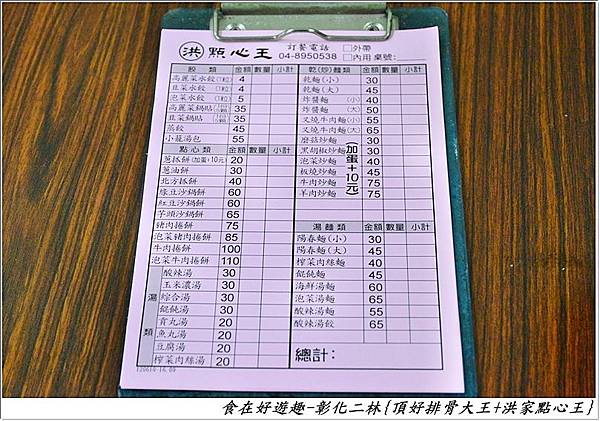 洪 點心王
訂餐電話 □外帶
04-8950538 □內用 桌號:
餃類 金額 數量 小計
高麗菜水餃(1粒) 4
韭菜水餃(1粒) 4
泡菜水餃(1粒) 5
高麗菜鍋貼 35
韭菜鍋貼 35
蒸餃 45
小籠湯包 55
點心類 金額 數量 小計
蔥抓餅(加蛋+10元) 20
蔥油餅 30
北方抓餅 40
綠豆沙鍋餅 60
紅豆沙鍋餅 60
芋頭沙鍋餅 65
豬肉捲餅 75
泡菜豬肉捲餅 85
牛肉捲餅 100
泡菜牛肉捲餅 110
湯類
酸辣湯 30
玉米濃湯 30
綜合湯 30
餛飩湯 30
貢丸湯 20
魚丸湯 20
豆腐湯 20
榨菜肉絲湯 20
乾(炒)麵類 金額 數量 小計
乾麵(小) 30
乾麵(大) 45
炸醬麵(小) 40
炸醬麵(大) 50
叉燒牛肉麵(小) 55
叉燒牛肉麵(大) 65
蘑菇炒麵 30
黑胡椒炒麵 30
泡菜炒麵 40
板燒炒麵 45
牛肉炒麵 75
羊肉炒麵 75
(加蛋+10元)
湯麵類 金額 數量 小計
陽春麵(小) 30
陽春麵(大) 45
榨菜肉絲麵 40
餛飩麵 45
海鮮湯麵 60
泡菜湯麵 65
酸辣湯麵 55
酸辣湯餃 65
總計:
食在好遊趣-彰化二林{頂好排骨大王+洪家點心王}